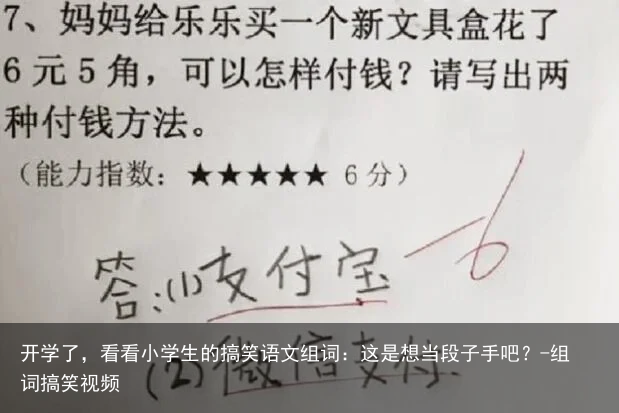 7、妈妈给乐乐买一个新文具盒花了
6元5角，可以怎样付钱？请写出两
种付钱方法。
（能力指数：★★★★★ 6分）
-6
答:(1)支付宝
开学了，看看小学生的搞笑语文组词：这是想当段子手吧？-组
词搞笑视频
(2)微信支付.